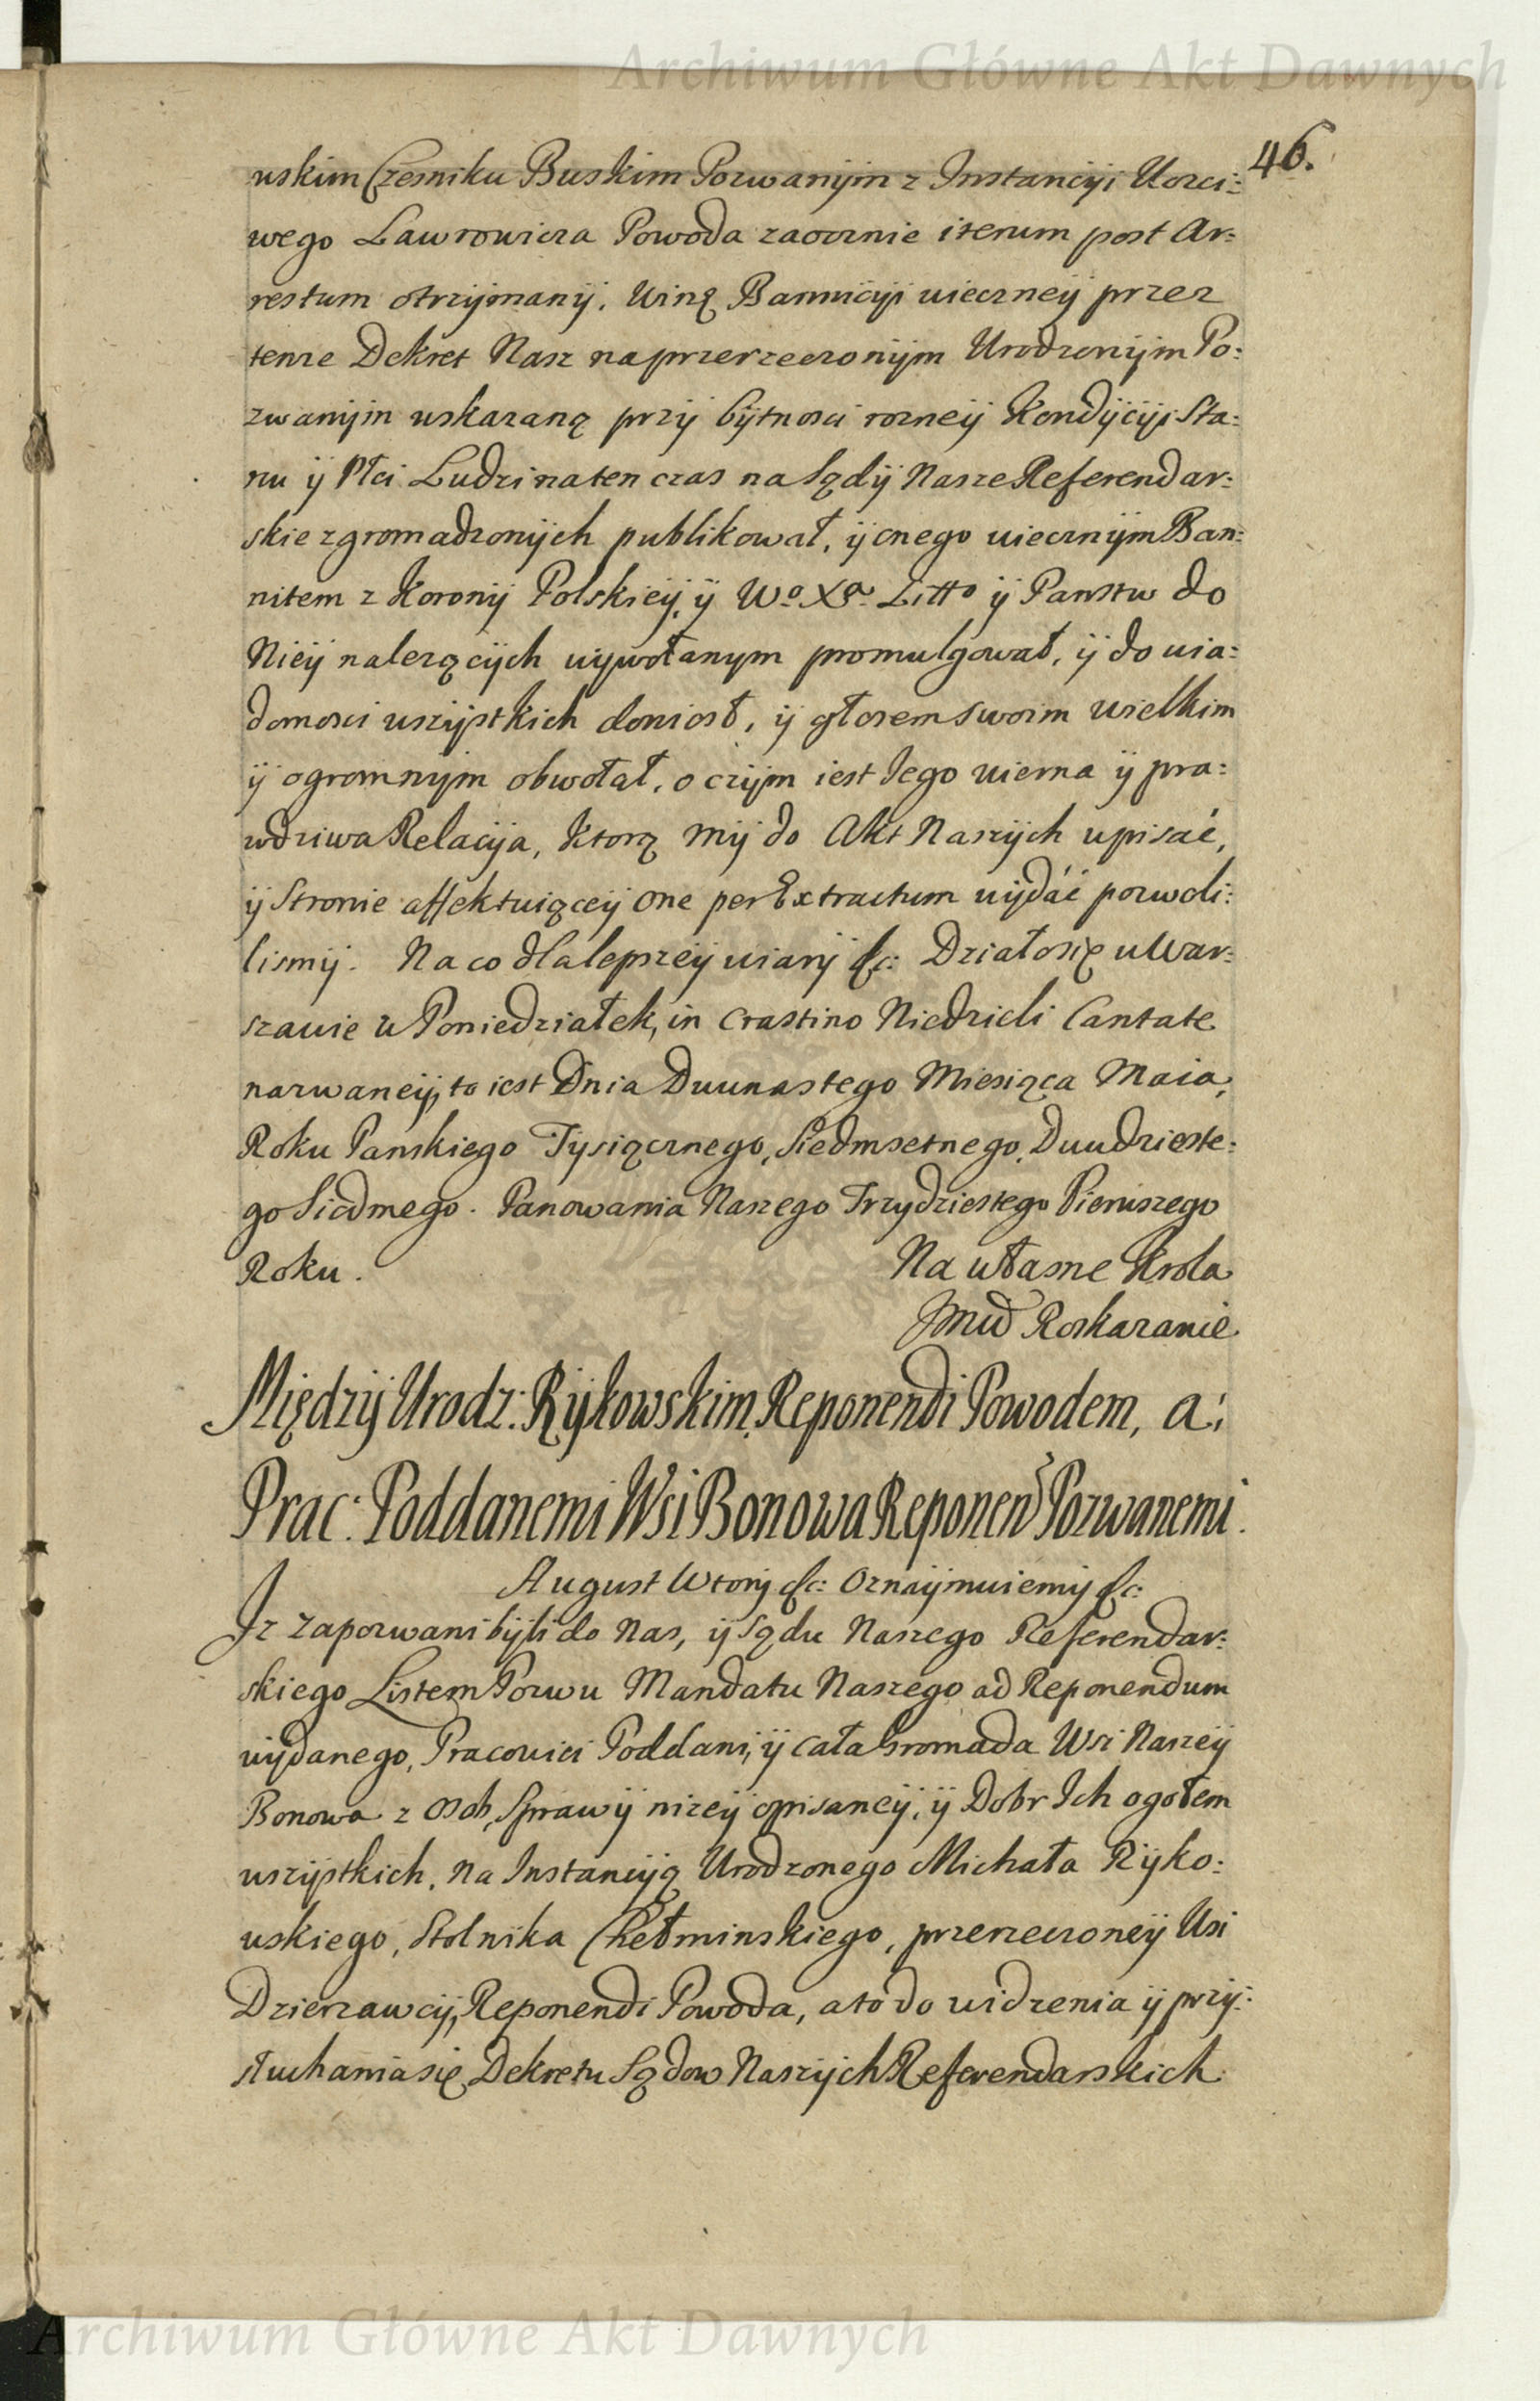 Archiwum Główne Akt Dawnych
46.
wskim Czesniku Buskim Pozwanÿm z Instancÿi Uczci:
wego Lawrowicza Powoda zaocznie iterum post Ar:
restum otrzÿmanÿ. Winą Bannicÿi wiecznеÿ przez
tenze Dekret Nasz na przerzeczonÿm Urodzonÿm Po:
zwanÿm wskazaną przÿ bÿtnosci rozneÿ Kondÿcÿi Sta:
nu ÿ Płci Ludzi na ten czas na Sądÿ Nasze Referendar:
skie zgromadzonÿch publikował, ÿ onego wiecznÿm Ban:
nitem z Koronÿ Polskieÿ, ÿ Wo Xa Litto ÿ Panstw do
Nieÿ nalezącÿch wÿwołanym promulgował, ÿ do wia:
domosci wszÿstkich doniosł, ÿ głosem swoim wielkim
ÿ ogromnÿm obwołał, o czÿm iest Iego wierna ÿ pra:
wdziwa Relacÿa, Ktorą Mÿ do Akt Naszÿch wpisać,
ÿ Stronie affektuiąceÿ one per Extractum wÿdáć pozwoli:
lismÿ. Na co dla lepszeÿ wiarÿ &c: Działo się w War:
szawie w Poniedziałek, in Crastino Niedzieli Cantate
nazwaneÿ, to iest Dnia Dwunastego Miesiąca Maia,
Roku Panskiego Tÿsiącznego, Siedmsetnego, Dwudzieste:
go Siodmego. Panowania Naszego Trzydziestego Pierwszego
Roku.
Na własne Krola
Jmci Roskazanie
Międzÿ Urodz: Rÿkowskim Reponendi Powodem, a:
Prac: Poddanemi Wsi Bonowa Reponen Pozwanemi.
August Wtorÿ &c: Oznaÿmuiemÿ &c:
Iz Zapozwani bÿli do Nas, ÿ Sądu Naszego Referendar:
skiego Listem Pozwu Mandatu Naszego ad Reponendum
wÿdanego, Pracowici Poddani, ÿ cała Gromada Wsi Naszeÿ
Bonowa z Osob, Sprawÿ nizeÿ opisaneÿ, ÿ Dobr Ich ogołem
wszÿstkich, Na Instancÿą Urodzonego Michała Rÿko:
wskiego, Stolnika Chełminskiego, przerzeczoneÿ Wsi
Dzierzawcÿ, Reponendi Powoda, a to do widzenia ÿ przÿ:
słuchania się Dekretu Sądow Naszÿch Referendarskich
Archiwum Główne Akt Dawnych